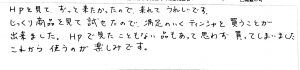 HPを見て、ずっと来たかったので、来れてうれしいです。
じっくり商品を見て試せたので、満足のいくティンシャを買うことが
出来ました。HPで見たことない品もあって思わず買ってしまいました
これから使うのが楽しみです。